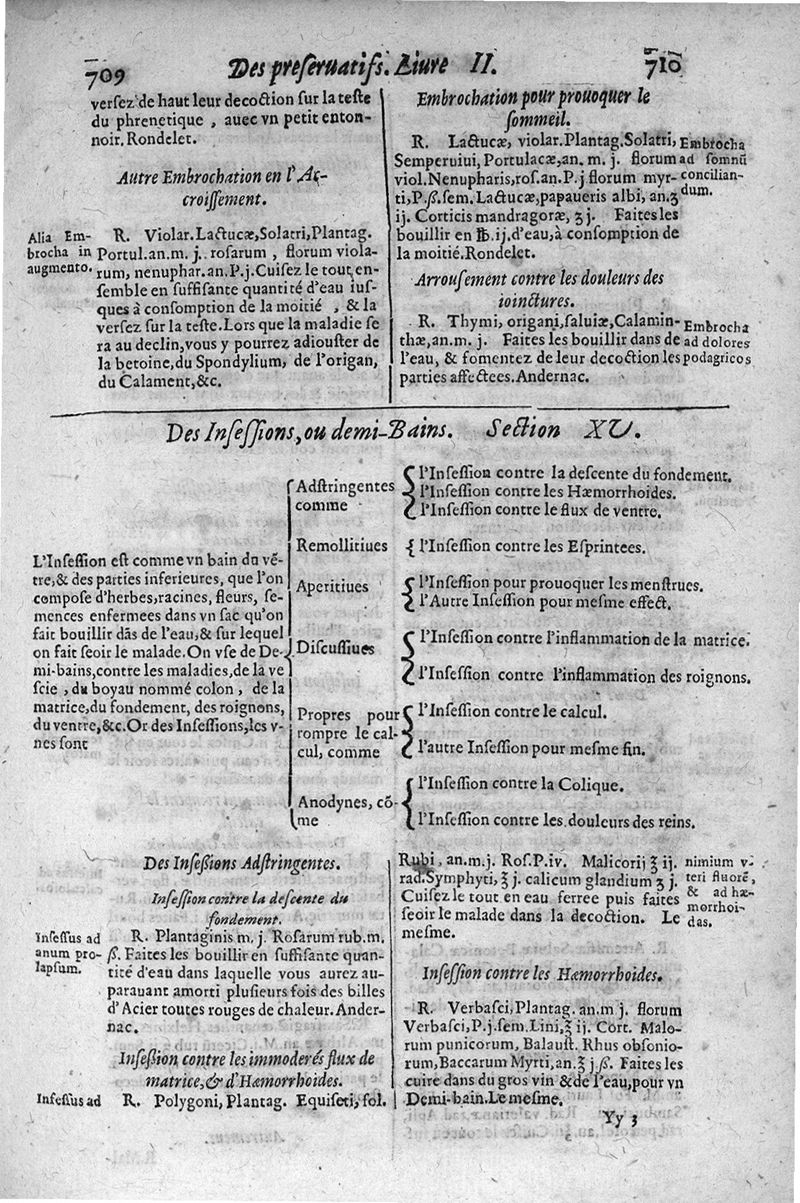 709
Des preſeruatifs. Liure II.
710
verſez de haut leur decoction ſur la teſte
du phrenetique, auec vn petit enton-
noir. Rondelet.
Autre Embrochation en l'Ac-
croiſſement.
Alia Em-
brocha in
augmento.
R. Violar. Lactucæ, Solatri, Plantag.
Portul. an. m. j. roſarum, florum viola-
rum, nenuphar. an. P. j. Cuiſez le tout en-
ſemble en ſuffiſante quantité d'eau iuſ-
ques à conſomption de la moitié, & la
verſez ſur la teſte. Lors que la maladie ſe
ra au declin, vous y pourrez adiouſter de
la betoine, du Spondylium, de l'origan,
du Calament, &c.
Embrochation pour prouoquer le
ſommeil.
R. Lactucæ, violar. Plantag. Solatri,
Semperuiui, Portulacæ, an. m. j. florum
viol. Nenupharis, roſ. an. P. j florum myr-
ti, P. ß. ſem. Lactucæ, papaueris albi, an. ʒ
ij. Corticis mandragoræ, ʒ j. Faites les
bouillir en ℔. ij. d'eau, à conſomption de
la moitié. Rondelet.
Embrocha
ad ſomnũ
concilian-
dum.
Arrouſement contre les douleurs des
ioinctures.
R. Thymi, origani, ſaluiæ, Calamin-
thæ, an. m. j. Faites les bouillir dans de
l'eau, & fomentez de leur decoction les
parties affectees. Andernac.
Embrocha
ad dolores
podagricos
Des Inſeſſions, ou demi-Bains. Section XV.
L'Inſeſſion eſt comme vn bain du vẽ-
tre, & des parties inferieures, que l'on
compoſe d'herbes, racines, fleurs, ſe-
mences enfermees dans vn ſac qu'on
fait bouillir dãs de l'eau, & ſur lequel
on fait ſeoir le malade. On vſe de De-
mi-bains, contre les maladies, de la ve
ſcie, du boyau nommé colon, de la
matrice, du fondement, des roignons,
du ventre, &c. Or des Inſeſſions, les v-
nes ſont
Adſtringentes
comme
l'Inſeſſion contre la deſcente du fondement.
l'Inſeſſion contre les Hæmorrhoides.
l'Inſeſſion contre le flux de ventre.
Remollitiues
l'Inſeſſion contre les Eſprintees.
Aperitiues
l'Inſeſſion pour prouoquer les menſtrues.
l'Autre Inſeſſion pour meſme effect.
Diſcuſſiues
l'Inſeſſion contre l'inflammation de la matrice.
l'Inſeſſion contre l'inflammation des roignons.
Propres pour
rompre le cal-
cul, comme
l'Inſeſſion contre le calcul.
l'autre Inſeſſion pour meſme fin.
Anodynes, cõ-
me
l'Inſeſſion contre la Colique.
l'Inſeſſion contre les douleurs des reins.
Des Inſeßions Adſtringentes.
Inſeſſion contre la deſcente du
fondement.
Inſeſſus ad
anum pro-
lapſum.
R. Plantaginis m. j. Roſarum rub. m.
ß. Faites les bouillir en ſuffiſante quan-
tité d'eau dans laquelle vous aurez au-
parauant amorti pluſieurs fois des billes
d'Acier toutes rouges de chaleur. Ander-
nac.
Inſeßion contre les immoderés flux de
matrice, & d'Hæmorrhoides.
Inſeſſus ad
R. Polygoni, Plantag. Equiſeti, fol.
Rubi, an. m. j. Roſ. P. iv. Malicorij ℥ ij.
rad. Symphyti, ℥ j. calicum glandium ʒ j.
Cuiſez le tout en eau ferree puis faites
ſeoir le malade dans la decoction. Le
meſme.
nimium v-
teri fluorẽ,
& ad hæ-
morrhoi-
das.
Inſeſſion contre les Hæmorrhoides.
R. Verbaſci, Plantag. an. m j. florum
Verbaſci, P. j. ſem. Lini, ℥ ij. Cort. Malo-
rum punicorum, Balauſt. Rhus obſonio-
rum, Baccarum Myrti, an. ℥ j. ß. Faites les
cuire dans du gros vin & de l'eau, pour vn
Demi-bain. Le meſme.
Yy 3